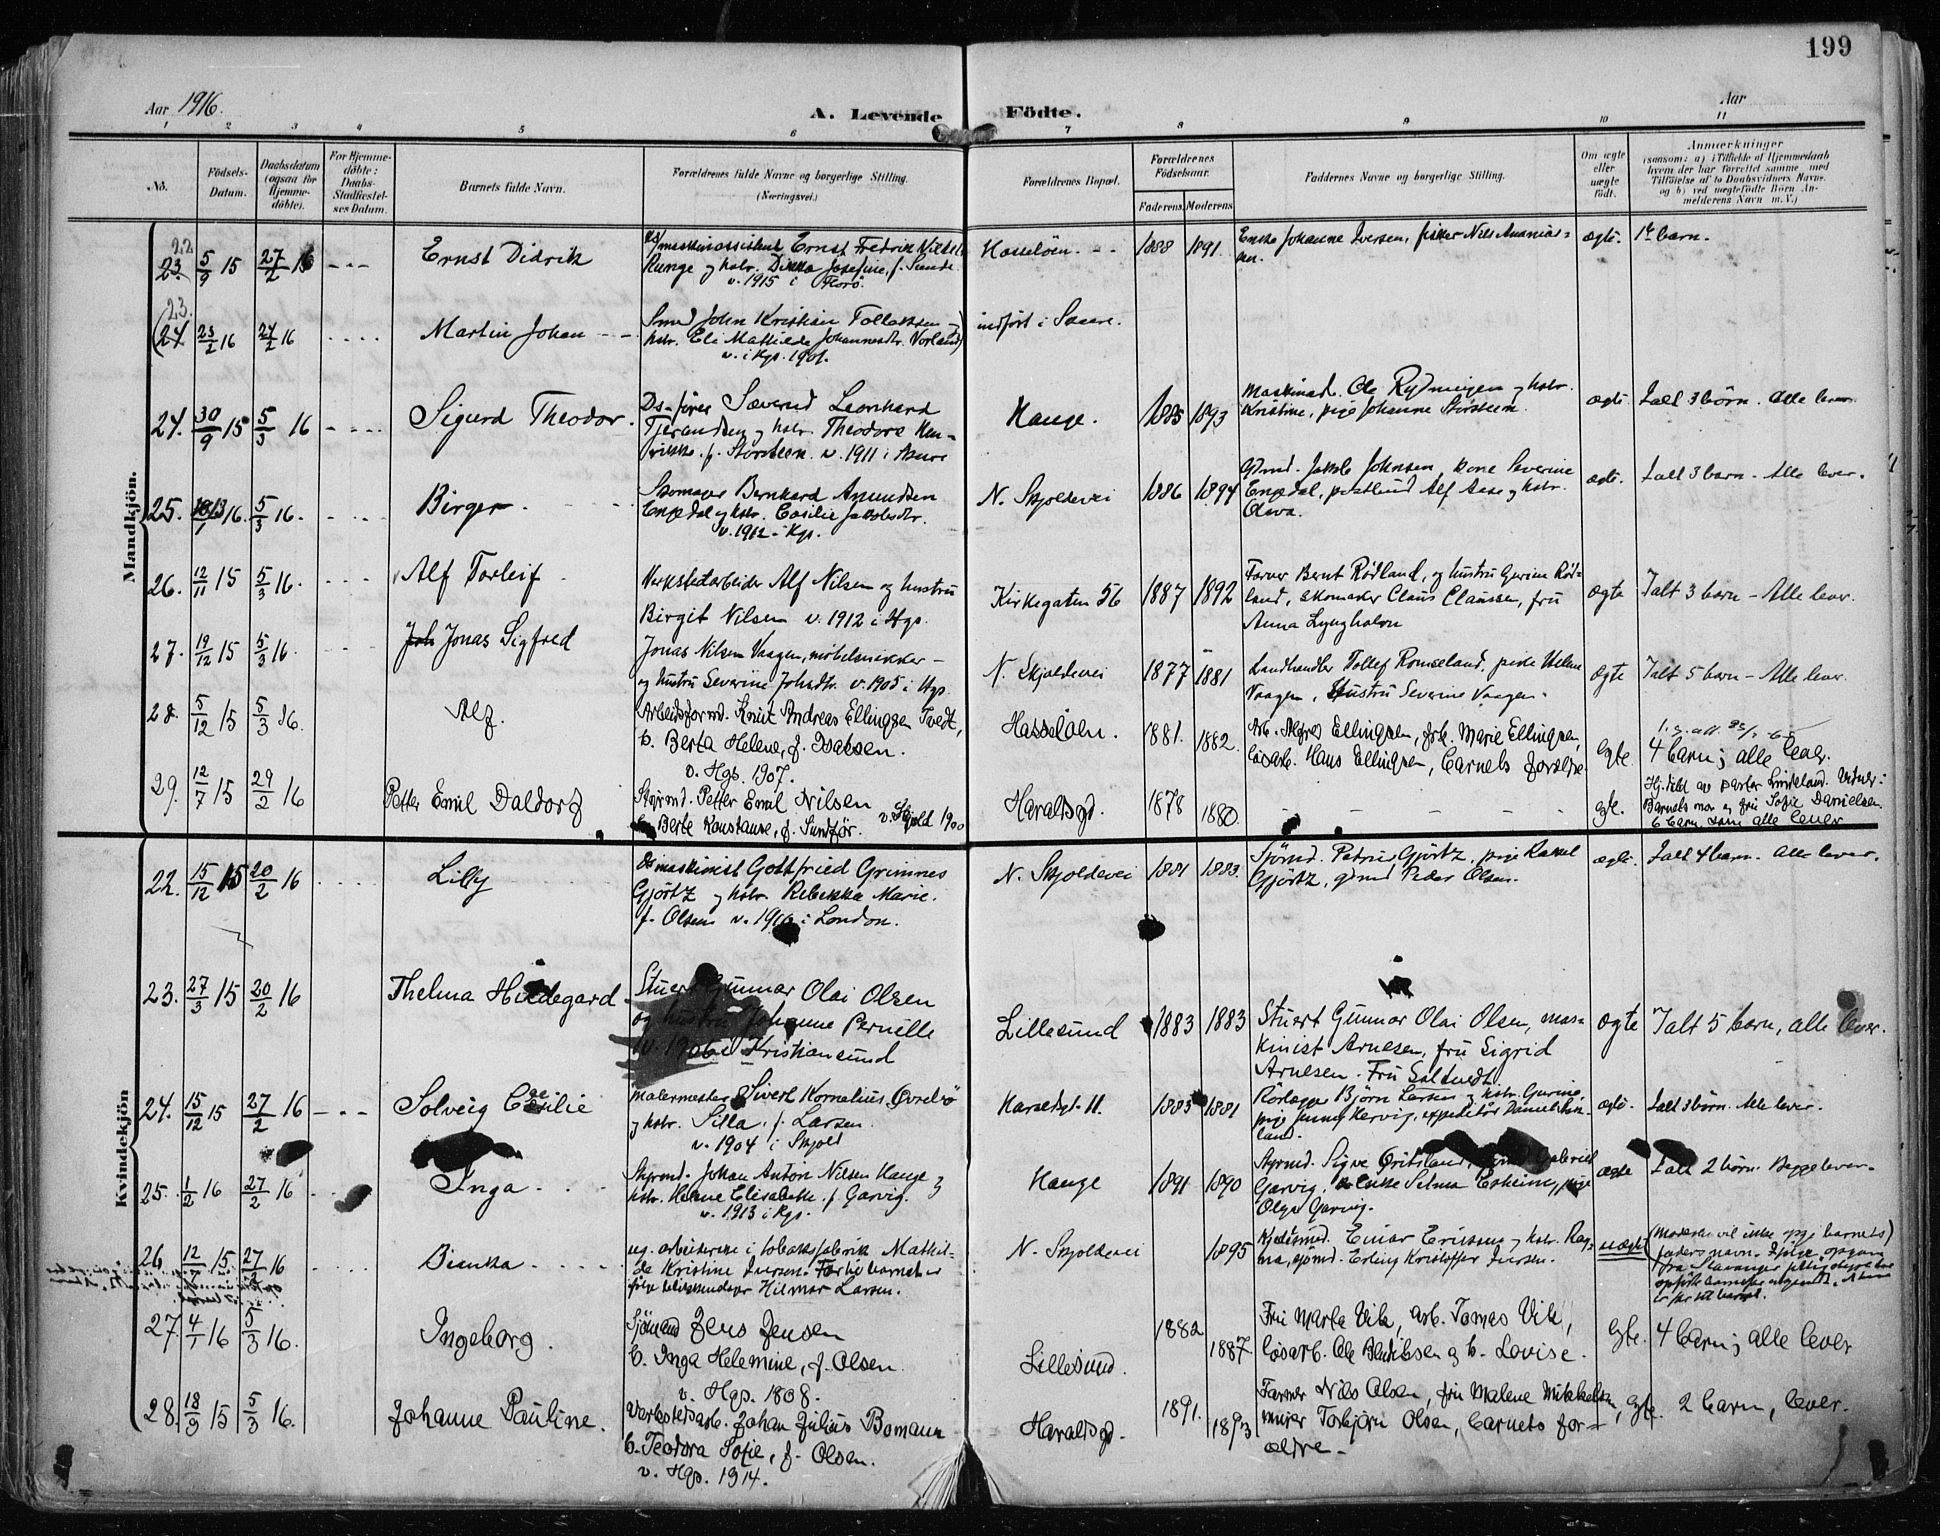 199
Aar 1916.
A. Levende Födte.
Aar
1 2 3 4 5 6 7 8 9 10 11
No.
Födsels-Datum.
Daabsdatum (ogsaa for Hjemmedöbte).
For Hjemmedöbte: Daabs-Stadfæstelses Datum.
Barnets fulde Navn.
Forældrenes fulde Navne og borgerlige Stilling.
(Næringsvei.)
Forældrenes Bopæl.
Forældrenes Födselsaar.
Faderens. Moderens.
Faddernes Navne og borgerlige Stilling.
Om ægte eller uægte födt.
Anmærkninger
(saasom: a) i Tilfælde af Hjemmedaab
hvem der har forrettet samme, med
Tilföielse af to Daabsvidners Navne.
og b) ved uægtefödte Börn An-
melderens Navn m. V.)
Mandkjön.
22
23. 5/9 15 27/2 16 Ernst Didrik
maskinassistent Ernst Fredrik
Runge og hstr. Josefine, f. Sunde
v. 1915 i Florö.
Hasseløen. 1888 1891. Enke Johanne Iversen, fisker Nils
ægte. 1ste barn.
23.
(24 23/2 16 27/2 16 Martin Johan
Smed John Kristian Tollaksen
hstr. Eli Mathilde Johannesdtr. Vorland)
v. i Hgs. 1901.
indført i Skaare.
24. 30/9 15 5/3 16 Sigurd Theodor.
Ds-fører Severud Leonhard
Tjerandsen og hstr. Theodora Hen-
rikke. f. Storsteen. v. 1911 i
Hauge. 1885 1893 Maskinad. Ole og hstr.
Kristine, pige Johanne Storsteen.
ægte. Ialt 3 börn. Alle lever.
25. 16. 5/3 16. Birger
Skomager Bernhard Amundsen
Engedal og hstr. Cecilie Jakobsdtr.
v. 1912 i Hgs.
N. Skjoldevei 1886 1894 Jakob Johnsen, kone Severine
Engedal, postbud Alf Aase og hstr.
Olava.
ægte. Ialt 3 barn - Alle lever.
26. 12/11 15 5/3 16. Alf Torleif
Verkstedarbeider Alf Nilsen og hustru
Birgit Nilsen v. 1912 i Hgs.
Kirkegaten 56 1887 1892 Farver Bernt Rødland, og hustru Gurine Rød-
land, skomaker Claus Claussen, fru
Anna Lyngholm
ægte Ialt 3 barn - Alle lever.
27. 19/12 15 5/3 16. Joh Jonas Sigfred
Jonas Nilsen Vaagen, møbelsnikker -
og hustru Severine Johsdtr. v. 1905 i Hgs.
N. Skjoldevei 1877 1881 Landhandler Tollef Romseland, pige Helene
Vaagen, Hustru Severine Vaagen.
ægte Ialt 5 barn - Alle lever.
28. 5/12 15 5/3 16. Alf.
Arbeidsformd. Knut Andreas Ellingsen Tvedt,
h. Berta Helene, f. Isaksen.
v. Hgs. 1907.
Hasseløen. 1881. 1882. Arb. Alfred Ellingsen, frk. Marie Ellingsen,
løsarb. Hans Ellingsen, barnets forældre.
Egte. 4 barn; alle lever.
29. 12/7 15 29/2 16 Petter Emil Daldorf
Styrmd. Petter Emil Nilsen
h. Berte Konstanse, f. Sundfør. v. Skjold 1900
Haraldsgd. 1878 1880.
Egte. Hj.döbt av pastor Lindeland. Vidner:
Barnets mor og fru Sofie Danielsen.
6 barn, som alle lever
Kvindekjön
22. 15/12 15 20/2 16 Lilly
Ds maskinist Gottfried Grimnes
Gjörtz og hstr. Rebekka Marie.
f. Olsen v. 1916 i London.
N. Skjoldevei 1881 1883. Sjömd. Petrus Gjörtz, pige Rakel
Gjörtz, gmd Peder Olsen.
ægte. Ialt 4 barn. Alle lever.
23. 27/3 15 20/2 16 Thelma Hildegard
Stuert Gunnar Olai Olsen
og hustru Johanne Pernille
v. 1906 i Kristiansund
Lillesund 1883 1883 Stuert Gunnar Olai Olsen, mas-
kinist Arnesen, fru Sigrid
Arnesen. Fru Soltvedt
ægte Ialt 5 barn, alle lever.
24. 15/12 15 27/2 16 Solveig Cecilie
Malermester Sivert Kornelius Øvrebö
og hstr. Silla. f. Larsen.
v. 1904 i Skjold
Haraldsgt. 11. 1885 1881 Rörlægger Björn Larsen og hstr. Gurine,
pige Jenny Hervig, expeditör Daniel
land.
ægte. Ialt 3 börn. Alle lever.
25. 1/2 16 27/2 16 Inga
Styrmd. Johan Anton Nilsen Hauge og
hstr. Helene Elisabeth. f. Garvig.
v. 1913 i Hgs.
Hauge 1891 1890 Styrmd. Sigve Gabriel
Garvig, Enke Selma pige
Olga Garvig.
ægte Ialt 2 börn. Begge lever.
26. 12/7 15 27/2 16 Bianka
ug. arbeiderske i tobaksfabrik Mathil-
de Kristine Iversen. Far til barnet er
Hilmar Larsen.
N. Skjoldevei 1895 Einar Eriksen og hstr. Rag-
na, sjömd. Erling Kristoffer Iversen.
uægte (Moderen vil ikke opgi barnets)
faders navn. Ifølge opgave
fra Stavanger
27. 4/1 16 5/3 16. Ingeborg.
Sjömand Jens Jensen
h. Inga Helemine, f. Olsen.
v. Hgs. 1908.
Lillesund. 1882 1887. Fru Marta Vik, arb. Tomas Vik,
løsarb. Ole og h. Lovise.
Egte. 4 barn; alle lever
28. 18/9 15 5/3 16. Johanne Pauline.
Verkstedsarb. Johan Julius Bomann
h. Teodora Sofie, f. Olsen.
v. Hgs. 1914.
Haraldsgd. 1891. 1893 Farmer Nils Olsen, fru Malene Mikkelsen,
murer Torbjørn Olsen, barnets for-
ældre.
Egte. 2 barn, lever.